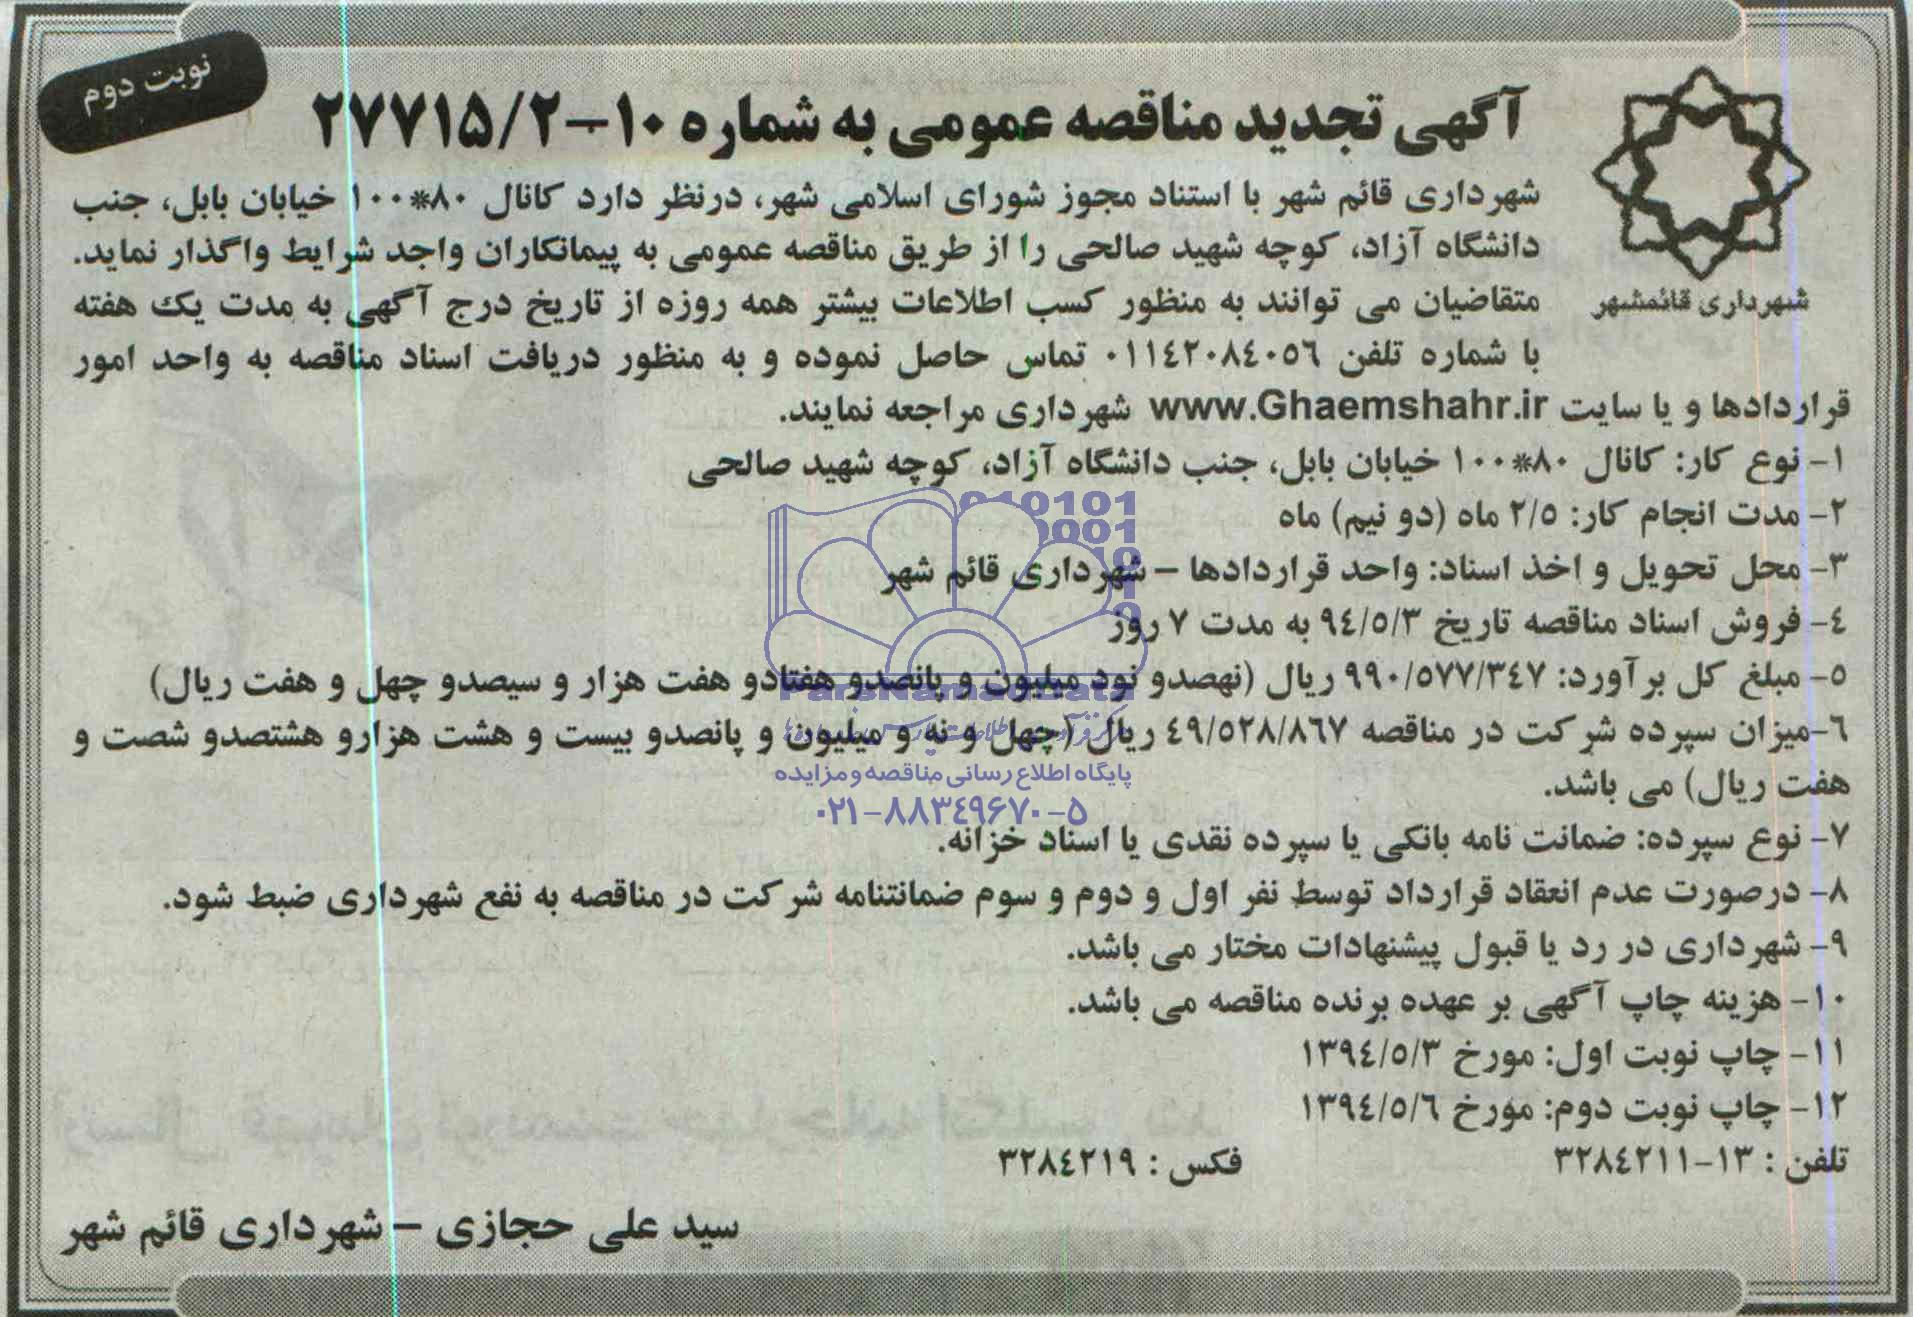 نوبت دوم
آگهی تجدید مناقصه عمومی به شماره ۱۰-۲۷۷۱۵/۲
شهرداری قائمشهر
شهرداری قائم شهر با استناد مجوز شورای اسلامی شهر، درنظر دارد کانال ۸۰*۱۰۰ خیابان بابل، جنب
دانشگاه آزاد، کوچه شهید صالحی را از طریق مناقصه عمومی به پیمانکاران واجد شرایط واگذار نماید.
متقاضیان می توانند به منظور کسب اطلاعات بیشتر همه روزه از تاریخ درج آگهی به مدت یک هفته
با شماره تلفن ۰۱۱٤۲۰۸٤۰۵٦ تماس حاصل نموده و به منظور دریافت اسناد مناقصه به واحد امور
قراردادها و یا سایت www.Ghaemshahr.ir شهرداری مراجعه نمایند.
۱- نوع کار: کانال ۸۰*۱۰۰ خیابان بابل، جنب دانشگاه آزاد، کوچه شهید صالحی
۲- مدت انجام کار: ۲/۵ ماه (دو نیم) ماه
۳- محل تحویل و اخذ اسناد: واحد قراردادها – شهرداری قائم شهر
٤- فروش اسناد مناقصه تاریخ ۹٤/۵/۳ به مدت ۷ روز
۵- مبلغ کل برآورد: ۹۹۰/۵۷۷/۳٤۷ ریال (نهصدو نود میلیون و پانصدو هفتادو هفت هزار و سیصدو چهل و هفت ریال)
٦-میزان سپرده شرکت در مناقصه ٤۹/۵۲۸/۸٦۷ ریال (چهل و نه و میلیون و پانصدو بیست و هشت هزارو هشتصدو شصت و
هفت ریال) می باشد.
۷- نوع سپرده: ضمانت نامه بانکی یا سپرده نقدی یا اسناد خزانه.
۸- درصورت عدم انعقاد قرارداد توسط نفر اول و دوم و سوم ضمانتنامه شرکت در مناقصه به نفع شهرداری ضبط شود.
۹- شهرداری در رد یا قبول پیشنهادات مختار می باشد.
۱۰- هزینه چاپ آگهی بر عهده برنده مناقصه می باشد.
۱۱- چاپ نوبت اول: مورخ ۱۳۹٤/۵/۳
۱۲- چاپ نوبت دوم: مورخ ۱۳۹٤/۵/٦
تلفن : ۱۳-۳۲۸٤۲۱۱ فکس : ۳۲۸٤۲۱۹
سید علی حجازی – شهرداری قائم شهر
پایگاه اطلاع رسانی مناقصه و مزایده
۰۲۱-۸۸۳٤۹۶۷۰-۵